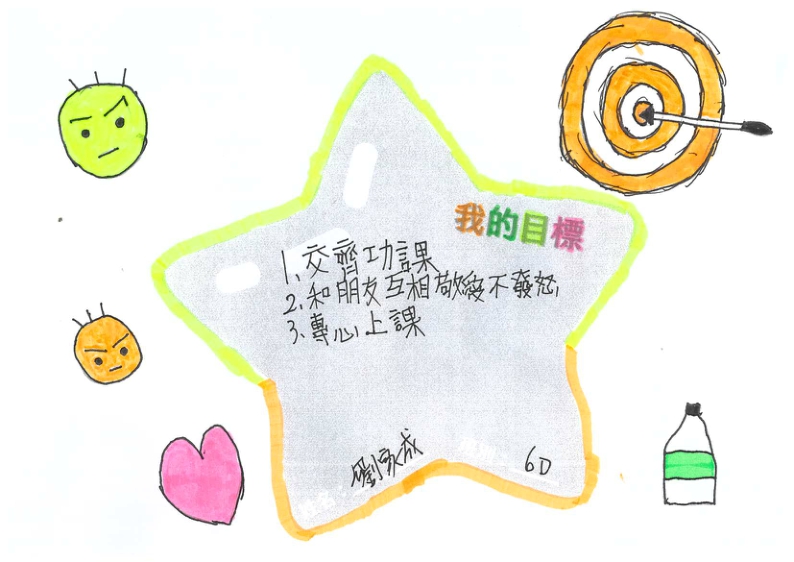 我的目標
1. 交齊功課
2. 和朋友互相敬愛不發怒
3. 專心上課
劉家成 6D